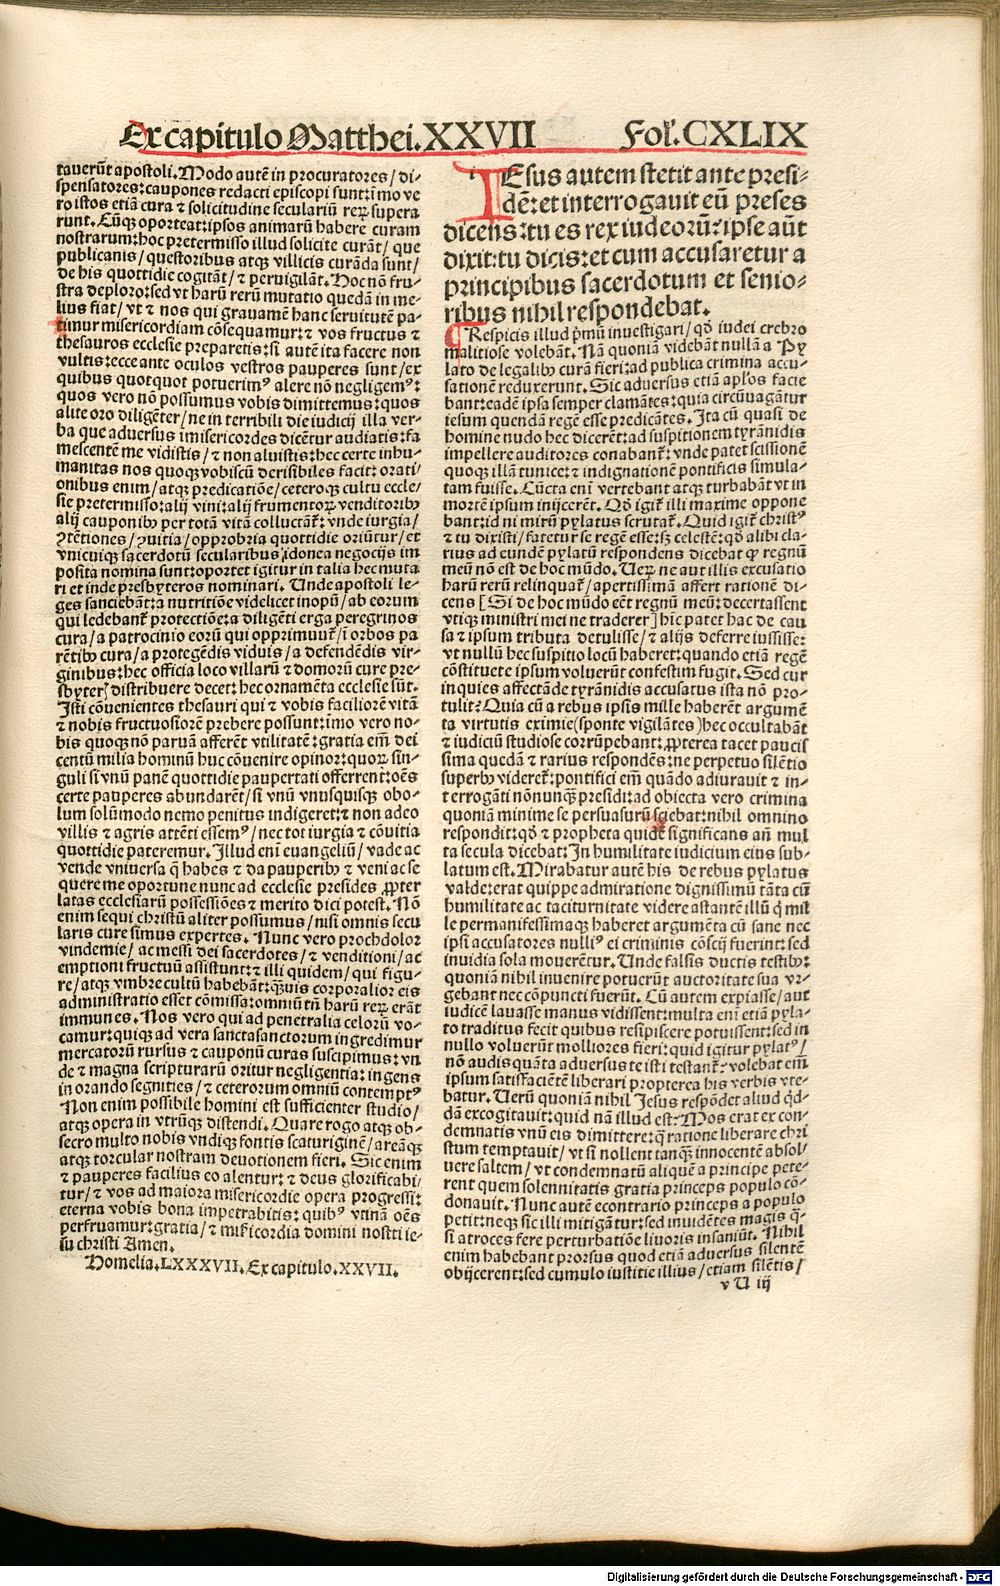 Ex capitulo Matthei. XXVII Fol. CXLIX
tauerūt apostoli. Modo autē in procuratores / di-
spensatores: caupones redacti episcopi sunt: īmo ve
ro istos etiā cura ⁊ solicitudine seculariū reꝝ supera
runt. Cūqꝫ oporteat: ipsos animarū habere curam
nostrarum: hoc pretermisso illud solicite curāt / que
publicanis / questoribus atqꝫ villicis curāda sunt /
de his quottidie cogitāt / ⁊ peruigilāt. Hoc nō fru-
stra deploro: sed vt harū rerū mutatio quedā in me-
lius fiat / vt ⁊ nos qui grauamē hanc seruitutē pa-
timur misericordiam cōsequamur: ⁊ vos fructus ⁊
thesauros ecclesie preparetis: si autē ita facere non
vultis: ecce ante oculos vestros pauperes sunt / ex
quibus quotquot potuerimꝰ alere nō negligemꝰ:
quos vero nō possumus vobis dimittemus: quos
alite oro diligēter / ne in terribili die iudicij illa ver-
ba que aduersus imisericordes dicētur audiatis: fa
mescentē me vidistis / ⁊ non aluistis: hec certe inhu-
manitas nos quoqꝫ vobiscū derisibiles facit: orati-
onibus enim / atqꝫ predicatiōe / ceteroqꝫ cultu eccle-
sie pretermisso: alij vini: alij frumentoꝝ venditoribꝫ
alij cauponibꝫ per totā vitā colluctāt̄: vnde iurgia /
ꝯtētiones / ꝯuitia / opprobria quottidie oriūtur / et
vnicuiqꝫ sacerdotū secularibus idonea negocijs im
posita nomina sunt: oportet igitur in talia hec muta
ri et inde presbyteros nominari. Unde apostoli le-
ges sanciebāt: a nutritiōe videlicet inopū / ab eorum
qui ledebant̄ protectiōe: a diligēti erga peregrinos
cura / a patrocinio eorū qui opprimuut̄ / ī orbos pa
rētibꝫ cura / a protegēdis viduis / a defendēdis vir-
ginibus: hec officia loco villarū ⁊ domorū cure pre-
sbyteri distribuere decet: hec ornamēta ecclesie sūt.
Isti cōuenientes thesauri qui ⁊ vobis faciliorē vitā
⁊ nobis fructuosiorē prebere possunt: īmo vero no-
bis quoqꝫ nō paruā afferēt vtilitatē: gratia em̄ dei
centū milia hominū huc cōuenire opinor: quoꝝ sin-
guli si vnū panē quottidie paupertati offerrent: oēs
certe pauperes abundarēt / si vnū vnusquisqꝫ obo-
lum solūmodo nemo penitus indigeret: ⁊ non adeo
villis ⁊ agris attēti essemꝰ / nec tot iurgia ⁊ cōuitia
quottidie pateremur. Illud enī euangeliū / vade ac
vende vniuersa q̄ habes ⁊ da pauperibꝫ ⁊ veni ac se
quere me oportune nunc ad ecclesie presides ꝓpter
latas ecclesiarū possessiōes ⁊ merito dici potest. Nō
enim sequi christū aliter possumus / nisi omnis secu
laris cure simus expertes. Nunc vero prochdolor
vindemie / ac messi dei sacerdotes / ⁊ venditioni / ac
emptioni fructuū assistunt: ⁊ illi quidem / qui figu-
re / atqꝫ vmbre cultū habebāt: q̄uis corporalior eis
administratio esset cōmissa: omniū tn̄ harū reꝝ erāt
immunes. Nos vero qui ad penetralia celorū vo-
camur: quiqꝫ ad vera sancta sanctorum ingredimur
mercatorū rursus ⁊ cauponū curas suscipimus: vn
de ⁊ magna scripturarū oritur negligentia: ingens
in orando segnities / ⁊ ceterorum omniū contemptꝰ
Non enim possibile homini est sufficienter studio /
atqꝫ opera in vtrūqꝫ distendi. Quare rogo atqꝫ ob-
secro multo nobis vndiqꝫ fontis scaturiginē / areāqꝫ
atqꝫ torcular nostram deuotionem fieri. Sic enim
⁊ pauperes facilius eo alentur: ⁊ deus glorificabi-
tur / ⁊ vos ad maiora misericordie opera progressi:
eterna vobis bona impetrabitis: quibꝰ vtinā oēs
perfruamur: gratia / ⁊ mi͞sicordia domini nostri ie-
su christi Amen.
Homelia. LXXXVII. Ex capitulo. XXVII.
IEsus autem stetit ante presi-
dē: et interrogauit eū preses
dicens: tu es rex iudeorū: ipse aūt
dixit: tu dicis: et cum accusaretur a
principibus sacerdotum et senio-
ribus nihil respondebat.
Respicis illud pͥmū inuestigari / qd̄ iudei crebro
malitiose volebāt. Nā quoniā videbāt nullā a Py
lato de legalibꝫ curā fieri: ad publica crimina accu-
sationē reduxerunt. Sic aduersus etiā apl̄os facie
bant: eadē ipsa semper clamātes: quia circūuagātur
iesum quendā regē esse predicātes. Ita cū quasi de
homine nudo hec dicerēt: ad suspitionem tyrānidis
impellere auditores conabant̄: vnde patet scissionē
quoqꝫ illā tunice: ⁊ indignationē pontificis simula-
tam fuisse. Cūcta enī vertebant atqꝫ turbabāt vt in
mortē ipsum inijcerēt. Qd̄ igit̄ illi maxime oppone
bant: id ni mirū pylatus scrutat̄. Quid igit̄ christꝰ
⁊ tu dixisti / fatetur se regē esse: sꝫ celestē: qd̄ alibi cla-
rius ad eundē pylatū respondens dicebat ꝙ regnū
meū nō est de hoc mūdo. Ueꝝ ne aut illis excusatio
harū rerū relinquat̄ / apertissimā affert rationē di-
cens [Si de hoc mūdo eēt regnū meū: decertassent
vtiqꝫ ministri mei ne traderer] hic patet hac de cau
sa ⁊ ipsum tributa detulisse / ⁊ alijs deferre iussisse:
vt nullū hec suspitio locū haberet: quando etiā regē
cōstituere ipsum voluerūt confestim fugit. Sed cur
inquies affectāde tyrānidis accusatus ista nō pro-
tulit? Quia cū a rebus ipsis mille haberēt argumē
ta virtutis eximie (sponte vigilātes) hec occultabāt
⁊ iudiciū studiose corrūpebant: ꝓpterea tacet paucis
sima quedā ⁊ rarius respondēs: ne perpetuo silētio
superbꝫ videret̄: pontifici em̄ quādo adiurauit ⁊ in-
terrogāti nōnunqꝫ presidi: ad obiecta vero crimina
quoniā minime se persuasurū sciebat: nihil omnino
respondit: qd̄ ⁊ propheta quidē significans an̄ mul
ta secula dicebat: In humilitate iudicium eius sub-
latum est. Mirabatur autē his de rebus pylatus
valde: erat quippe admiratione dignissimū tāta cū
humilitate ac taciturnitate videre astantē illū q̄ mil
le permanifestissimaqꝫ haberet argumēta cū sane nec
ipsi accusatores nulliꝰ ei criminis cōscij fuerint: sed
inuidia sola mouerētur. Unde falsis ductis testibꝫ:
quoniā nihil inuenire potuerūt auctoritate sua vr-
gebant nec cōpuncti fuerūt. Cū autem expiasse / aut
iudicē lauasse manus vidissent: multa enī etiā pyla-
to traditus fecit quibus resipiscere potuissent: sed in
nullo voluerūt molliores fieri: quid igitur pylatꝰ /
nō audis quāta aduersus te isti testant̄: volebat em̄
ipsum satisfaciētē liberari propterea his verbis vte-
batur. Uerū quoniā nihil Jesus respōdet aliud qd̄-
dā excogitauit: quid nā illud est: Mos erat ex con-
demnatis vnū eis dimittere: q̄ ratione liberare chri
stum temptauit / vt si nollent tanqꝫ innocentē absol
uere saltem / vt condemnatū aliquē a principe pete-
rent quem solennitatis gratia princeps populo cō-
donauit. Nunc autē econtrario princeps a populo
petit: neqꝫ sic illi mitigātur: sed inuidētes magis q̄-
si atroces fere perturbatiōe liuoris insaniūt. Nihil
enim habebant prorsus quod etiā aduersus silentē
obijcerent: sed cumulo iustitie illius / etiam silētis /
v U iij
Digitalisierung gefördert durch die Deutsche Forschungsgemeinschaft - DFG